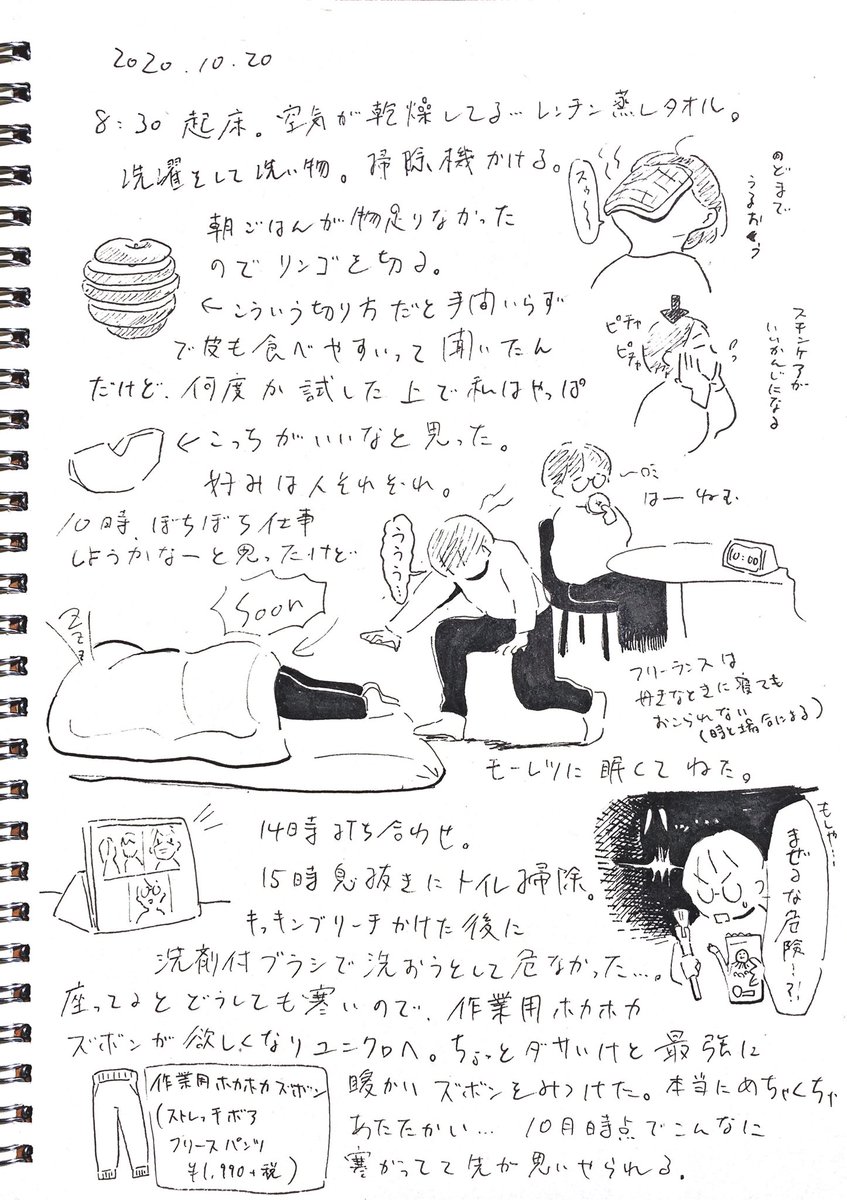 2020.10.20
8:30 起床。空気が乾燥してる…レンチン蒸しタオル。
洗濯をして洗い物。掃除機かける。
スゥ〜
のどまで
うるおう
朝ごはんが物足りなかった
のでリンゴを切る。
←こういう切り方だと手間いらず
で皮も食べやすいって聞いたん
だけど、何度か試した上で私はやっぱ
ピチャ
ピチャ
スキンケアが
いいかんじになる
←こっちがいいなと思った。
好みは人それぞれ。
10時、ぼちぼち仕事
しようかなーと思ったけど
はーねむ
10:00
ううう…
Soon
zzz
フリーランスは
好きなときに寝ても
おこられない
(時と場合による)
モーレツに眠くてねた。
14時打ち合わせ。
15時息抜きにトイレ掃除。
キッチンブリーチかけた後に
洗剤付ブラシで洗おうとして危なかった…。
もしや…
まぜるな危険!?
座ってるとどうしても寒いので、作業用ホカホカ
ズボンが欲しくなりユニクロへ。ちょっとダサいけど最強に
暖かいズボンをみつけた。本当にめちゃくちゃ
あたたかい… 10月時点でこんなに
寒がってて先が思いやられる。
作業用ホカホカズボン
(ストレッチボア
フリースパンツ
¥1,990+税)